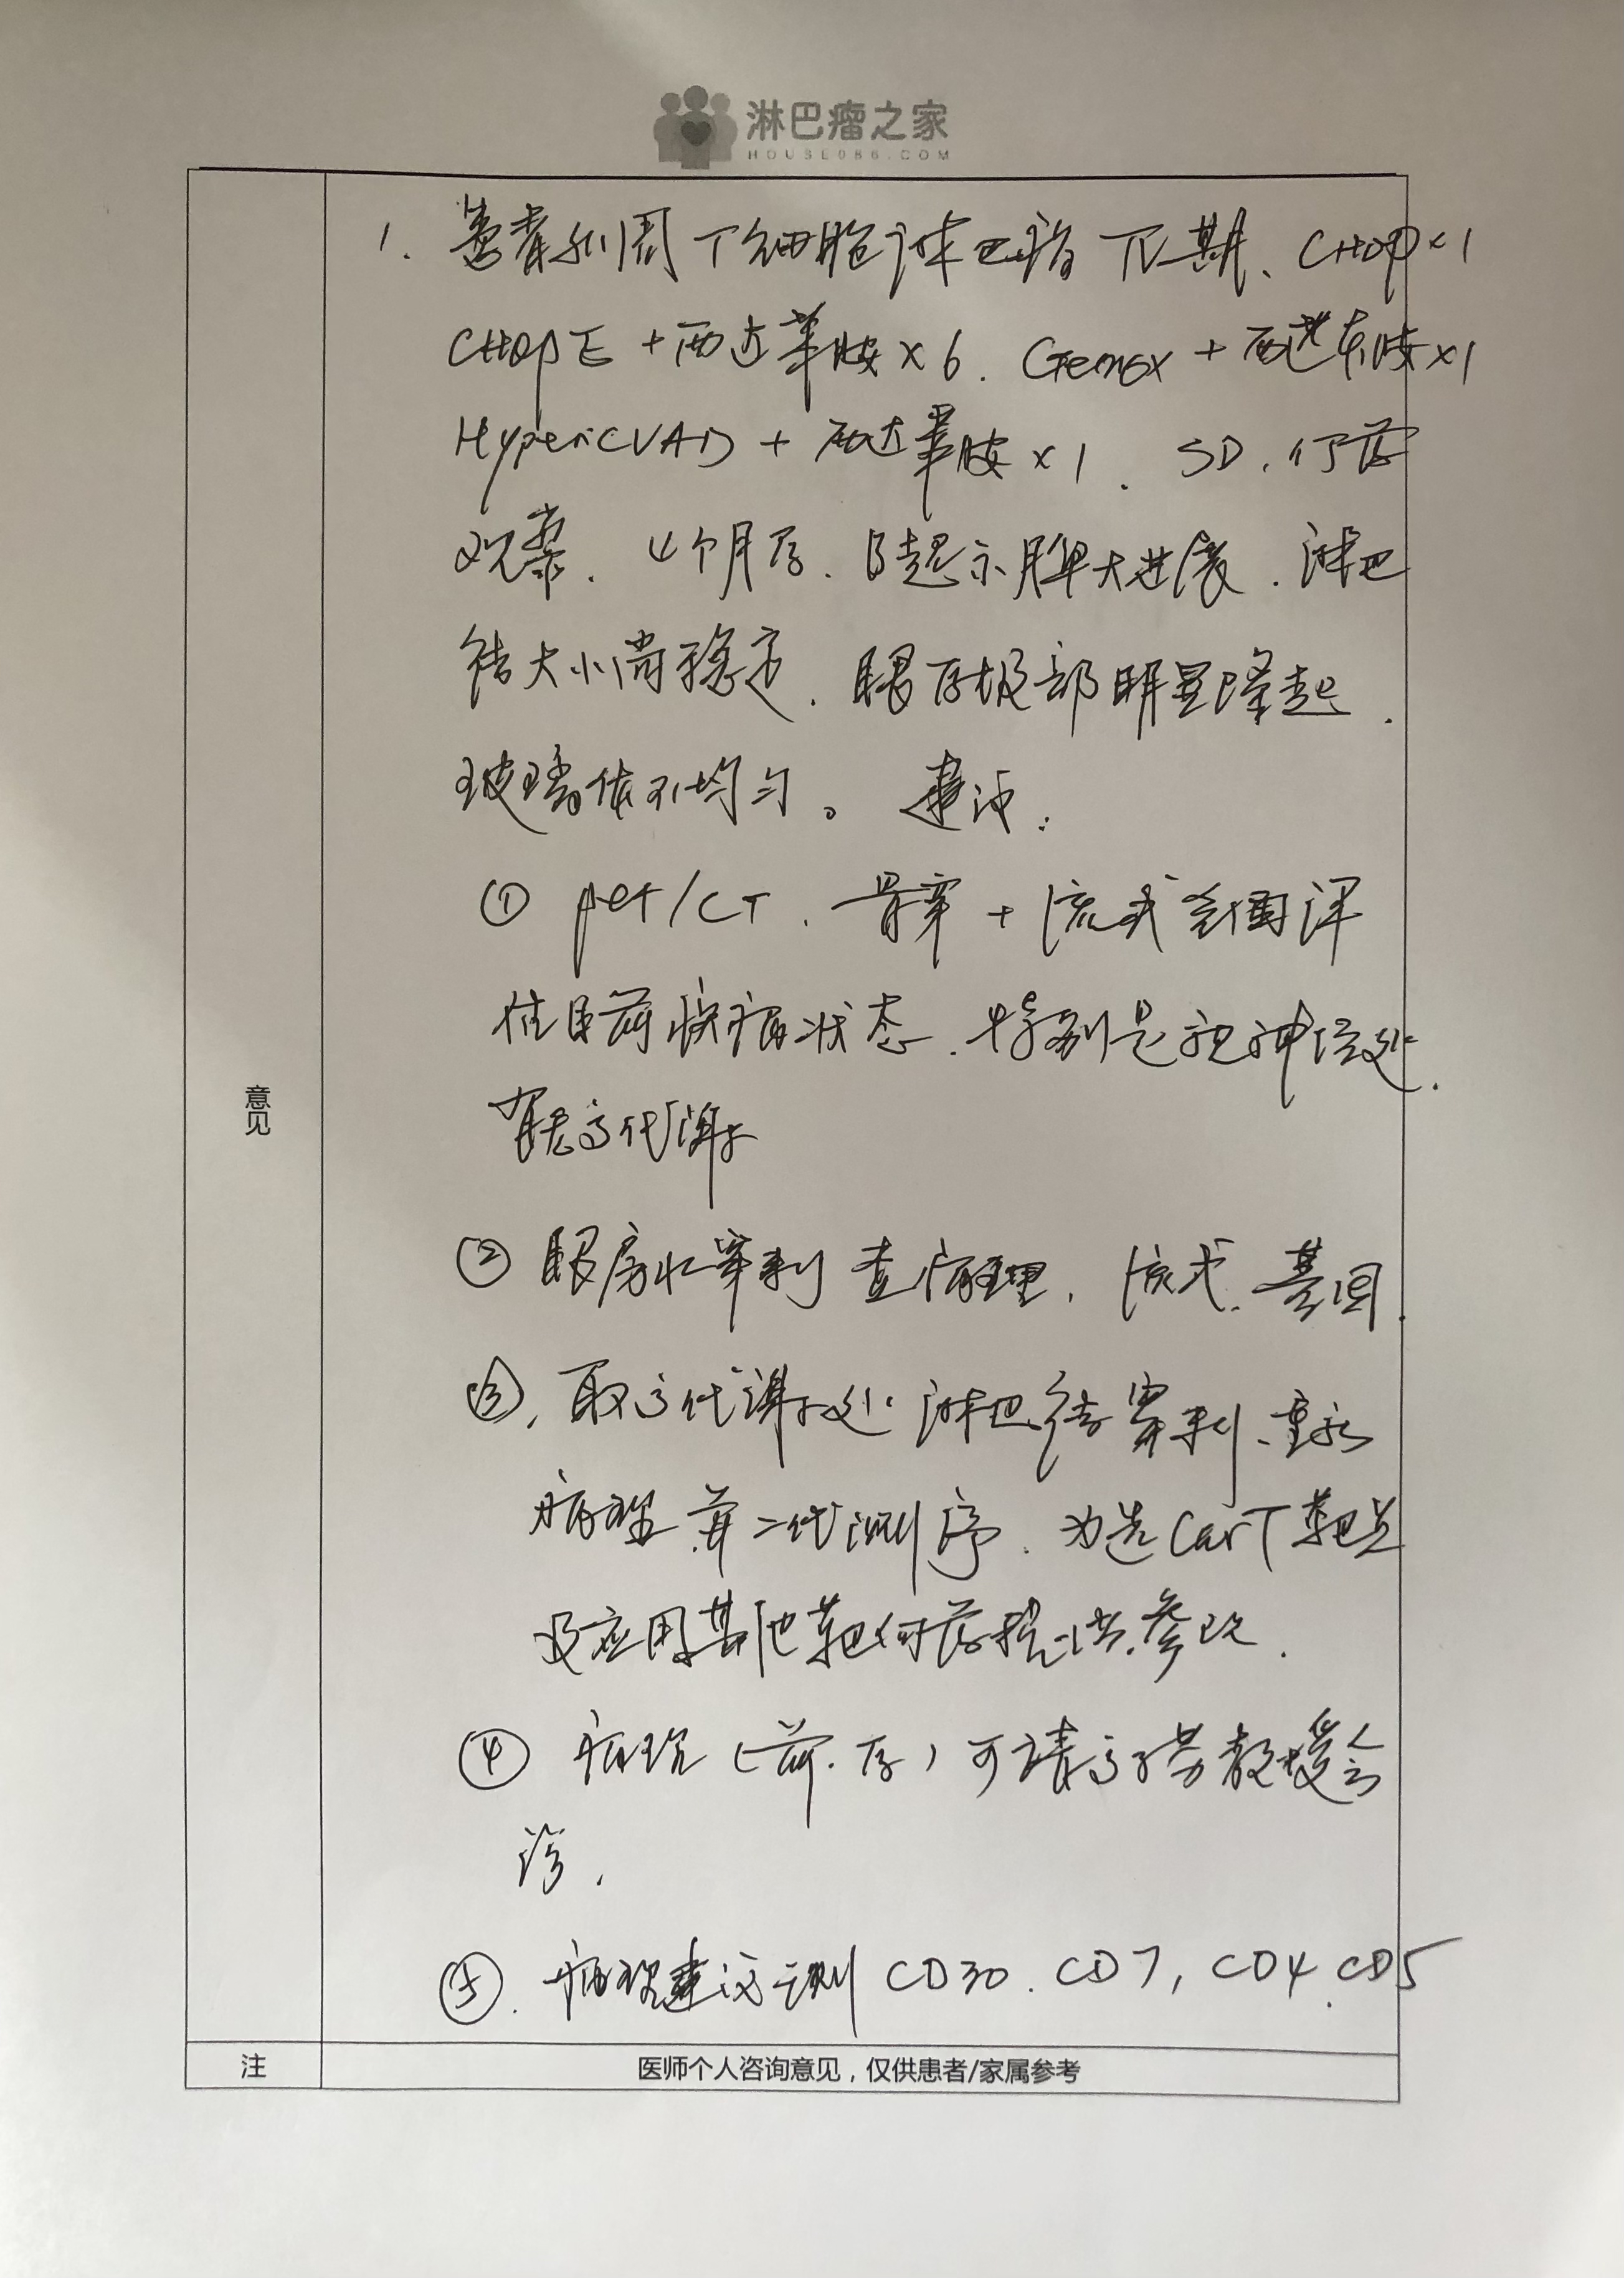 淋巴瘤之家
HOUSE086.COM
1. 患者外周T细胞淋巴瘤 IV期、CHOP×1
CHOPE+西达苯胺×6. Gemox+西达苯胺×1
HyperCVAD+西达苯胺×1. SD,停药
观察. 4个月后.B超示脾大进展.淋巴
结大小尚稳定.眼后极部明显隆起.
玻璃体不均匀。建议:
① pet/CT.骨穿+流式全面评
估目前疾病状态.特别是视神经处.
有无高代谢
② 眼房水穿刺查病理.流式.基因.
③.取高代谢处淋巴结穿刺、重新
病理并二代测序.为选CarT靶点
及应用其他靶向药提供参考.
④ 病理(前.后)可请高子芬教授会
诊.
⑤.病理建议测CD30.CD7,CD4.CD5
意见
注
医师个人咨询意见,仅供患者/家属参考